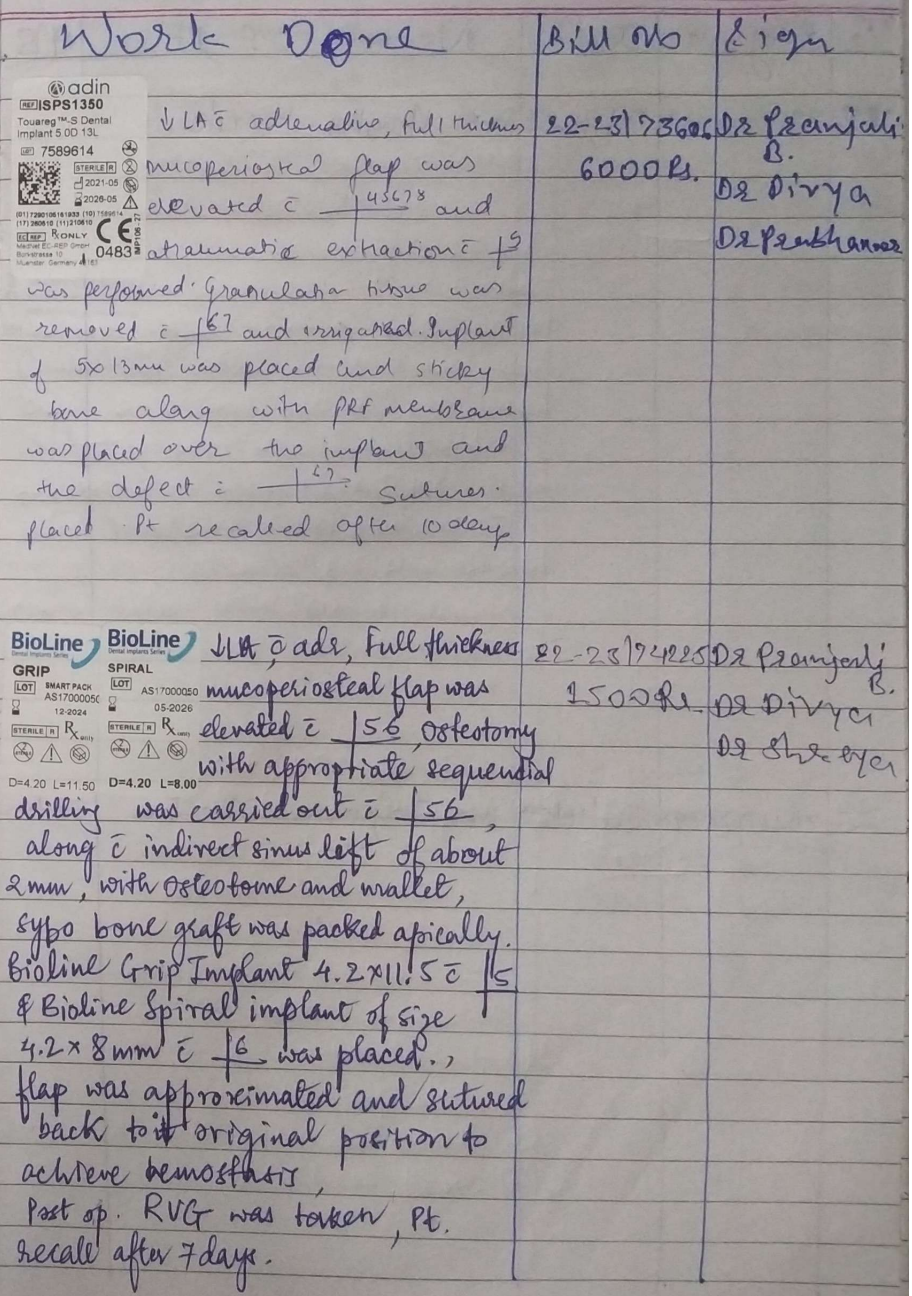 Work Done Bill No Sign
adin
REF ISPS1350
Touareg™-S Dental
Implant 5.0D 13L
LOT 7589614
STERILE R
2021-05
2026-05
(01) 7290106161933 (10) 7589614
(17) 260510 (11) 210510
EC REP Rx ONLY
MedNet EC-REP GmbH
Borkstrasse 10
Muenster, Germany
CE
0483
↓LA c̄ adrenaline, Full thickness
mucoperiosteal flap was
elevated c̄ 45678 and
atraumatic extraction c̄ 5
was performed. Granulation tissue was
removed c̄ 67 and irrigated. Implant
of 5x13mm was placed and sticky
bone along with PRF membrane
was placed over the implant and
the defect c̄ 67. Sutures.
placed Pt recalled after 10 days
22-23/73606
6000 Rs.
Dr Pranjali
B.
Dr Divya
BioLine
Dental Implants Series
GRIP
LOT SMART PACK
12-2024
STERILE R Rx only
D=4.20 L=11.50
BioLine
Dental Implants Series
SPIRAL
LOT
AS17000050
05-2026
STERILE R Rx only
D=4.20 L=8.00
↓LA c̄ adr, Full thickness
mucoperiosteal flap was
elevated c̄ 56, osteotomy
with appropriate sequential
drilling was carried out c̄ 56,
along c̄ indirect sinus lift of about
2mm, with osteotome and mallet,
sybo bone graft was packed apically.
Bioline Grip Implant 4.2x11.5 c̄ 5
& Bioline Spiral implant of size
4.2 x 8mm c̄ 6 was placed.,
flap was approximated and sutured
back to it original position to
achieve hemosthsis,
Post op. RVG was taken, Pt.
recall after 7 days.
22-23/74225
1500 Rs.
Dr Pranjali
B.
Dr Divya
Dr Shreya